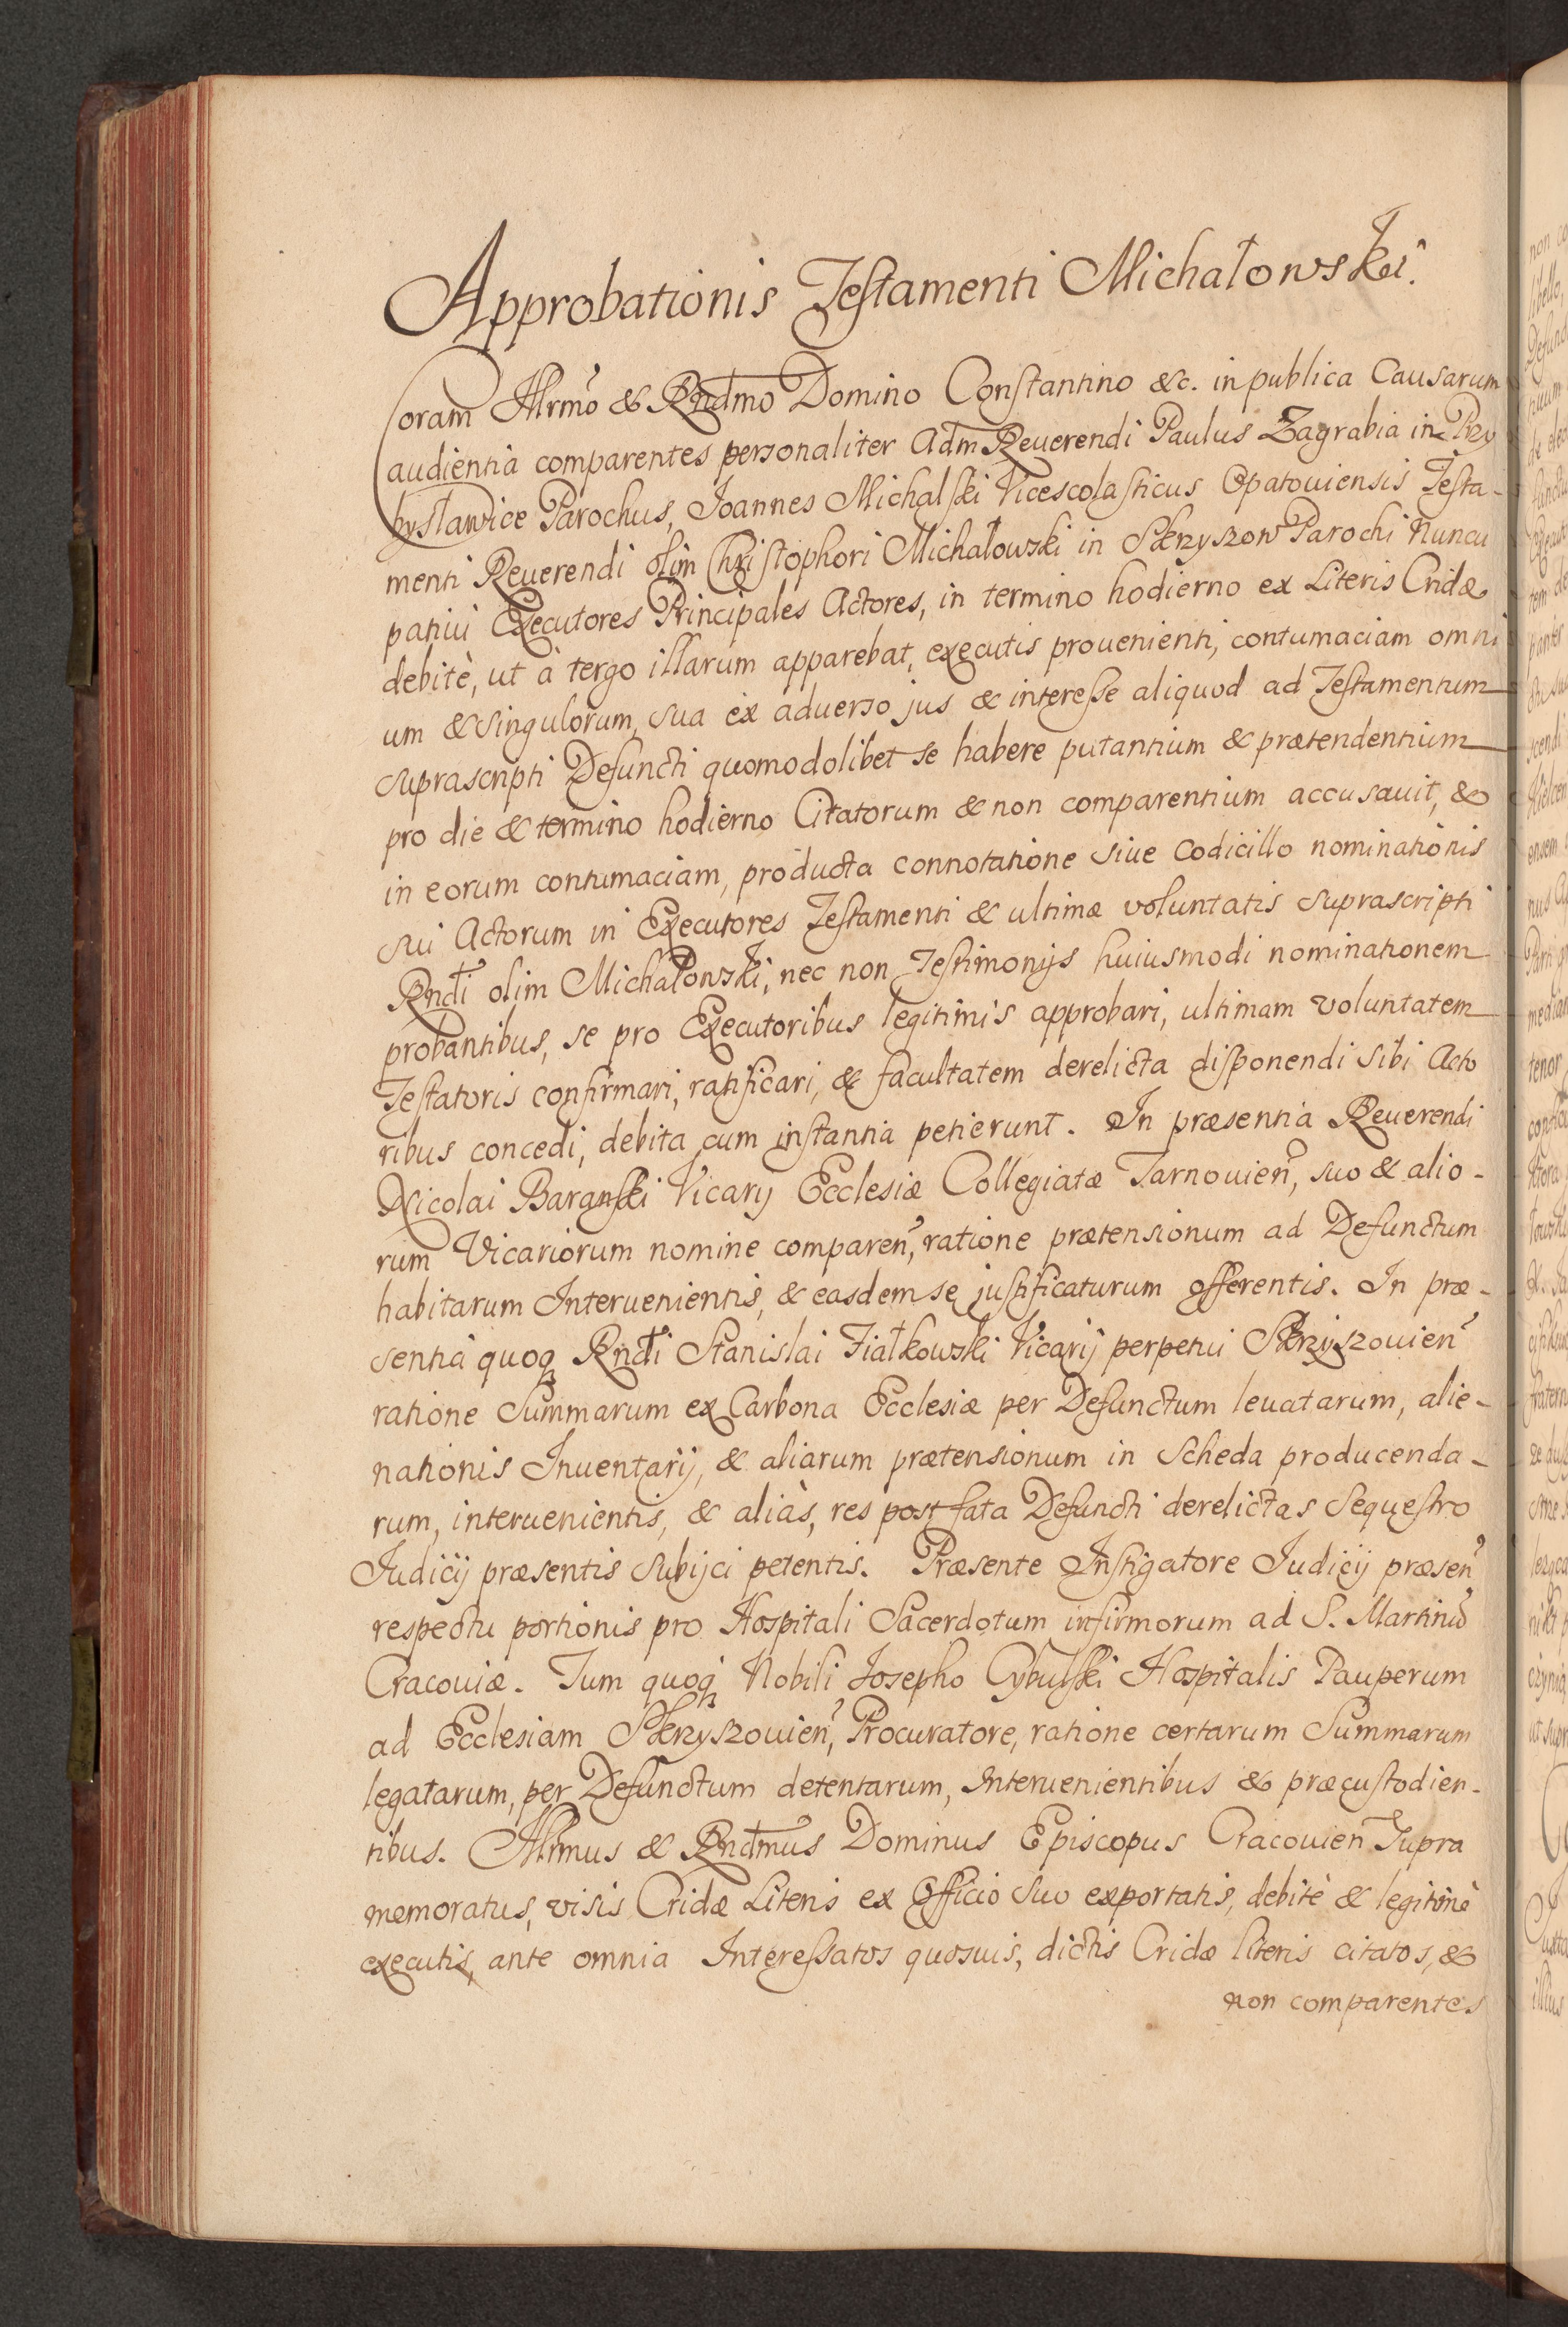 Approbationis Testamenti Michałowski.
Coram Illrmo & Rndmo Domino Constantino &c. in publica Causarum
audientia comparentes personaliter Adm Reuerendi Paulus Zagrabia in Przy
bysławice Parochus, Joannes Michalski Vicescolasticus Opatouiensis Testa-
menti Reuerendi olim Christophori Michałowski in Skrzyszow Parochi Nuncu
patiui Executores Principales Actores, in termino hodierno ex Literis Cridæ
debitè, ut à tergo illarum apparebat, executis prouenienti, contumaciam omni
um & singulorum, sua ex aduerso jus & interesse aliquod ad Testamentum
suprascripti Defuncti quomodolibet se habere putantium & prætendentium
pro die & termino hodierno Citatorum & non comparentium accusauit, &
in eorum contumaciam, producta connotatione siue Codicillo nominationis
sui Actorum in Executores Testamenti & ultimæ voluntatis suprascripti
Rndi olim Michałowski, nec non Testimonijs huiusmodi nominationem
probantibus, se pro Executoribus legitimis approbari, ultimam voluntatem
Testatoris confirmari, ratificari, & facultatem derelicta disponendi sibi Acto
ribus concedi, debita cum instantia petierunt. In præsentia Reuerendi
Nicolai Baranski Vicarij Ecclesiæ Collegiatæ Tarnouien, suo & alio-
rum Vicariorum nomine comparen, ratione prætensionum ad Defunctum
habitarum Interuenientis, & easdem se justificaturum offerentis. In præ-
sentia quoq Rndi Stanislai Fiałkowski Vicarij perpetui Skrzyszouien
ratione Summarum ex Carbona Ecclesiæ per Defunctum leuatarum, alie-
nationis Inuentarij, & aliarum prætensionum in Scheda producenda-
rum, interuenientis, & aliàs, res post fata Defuncti derelictas Sequestro
Judicij præsentis subijci petentis. Præsente Instigatore Judicij præsen
respectu portionis pro Hospitali Sacerdotum infirmorum ad S. Martinu
Cracouiæ. Tum quoq Nobili Josepho Cybulski Hospitalis Pauperum
ad Ecclesiam Skrzyszouien, Procuratore, ratione certarum Summarum
legatarum, per Defunctum detentarum, Interuenientibus & præcustodien-
tibus. Illrmus & Rndmus Dominus Episcopus Cracouien Supra
memoratus, visis Cridæ Literis ex Officio suo exportatis, debitè & legitimè
executis, ante omnia Interessatos quosuis, dictis Cridæ literis citatos, &
non comparentes